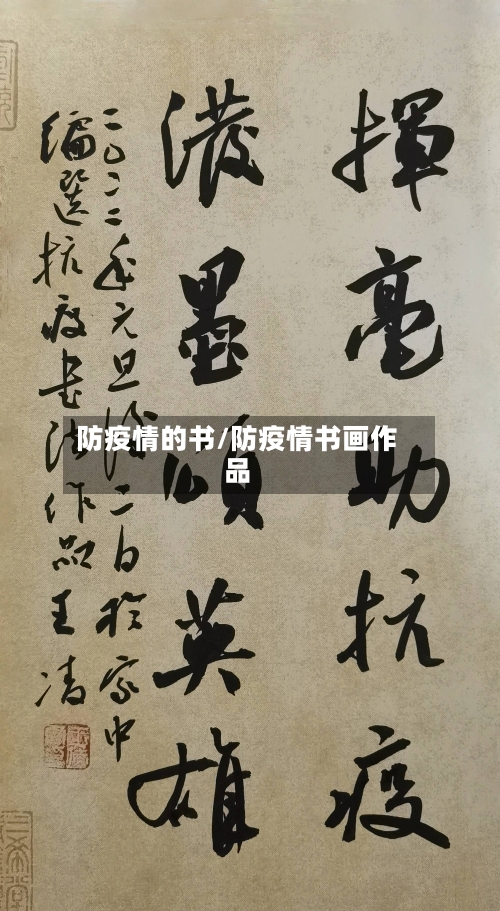 揮毫助抗疫
濃墨頌英雄
二〇二二年元旦後二日於家中
编选抗疫书法作品王清
防疫情的书/防疫情书画作
品